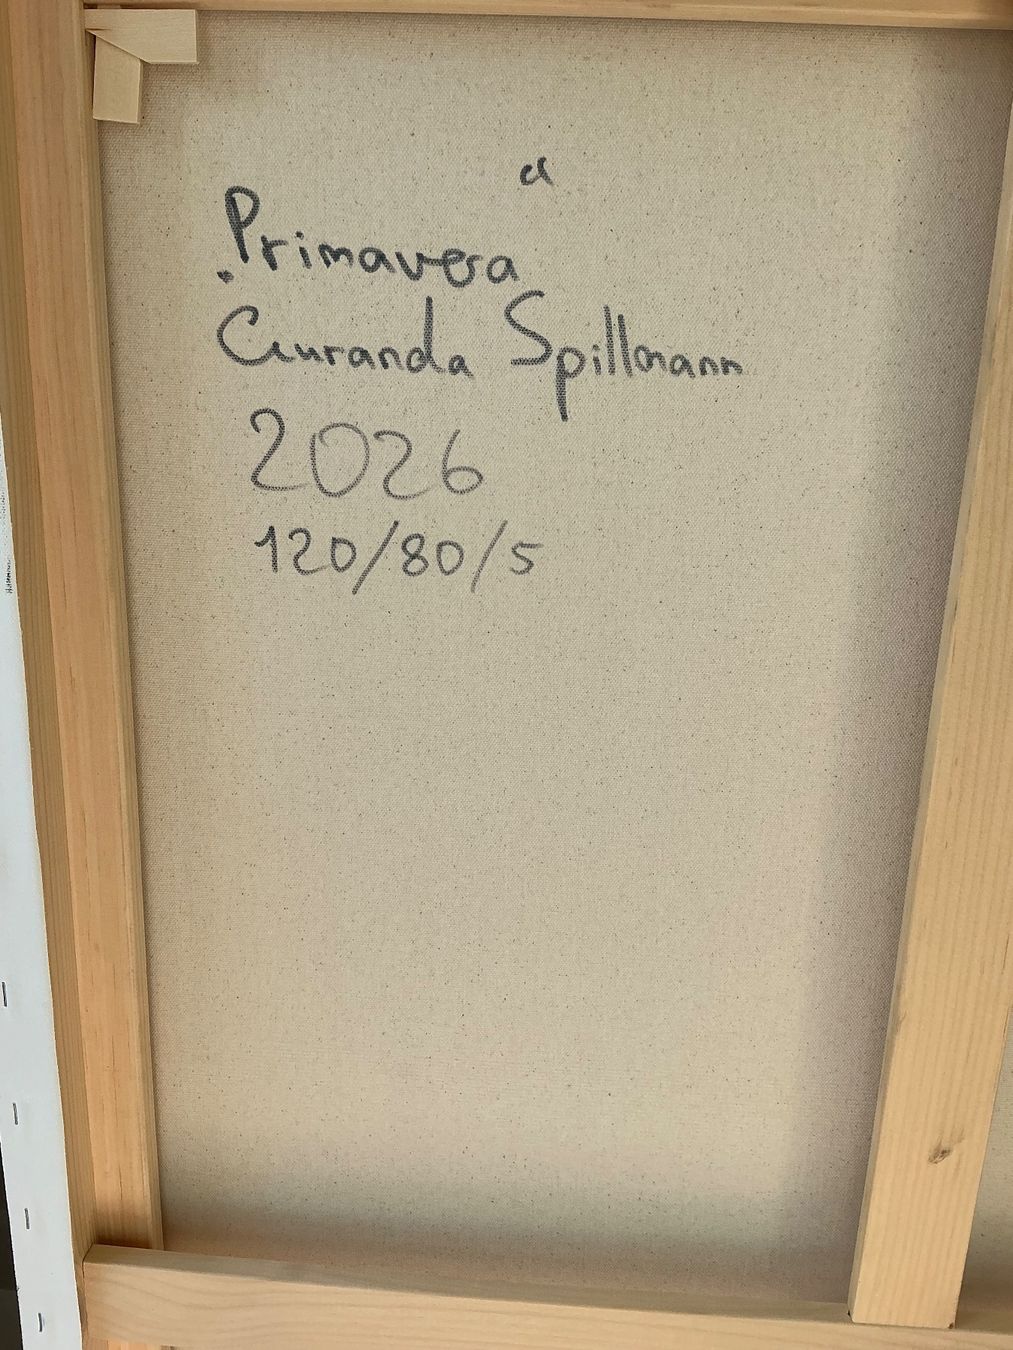 "Primavera"
Guranda Spillmann
2026
120/80/5